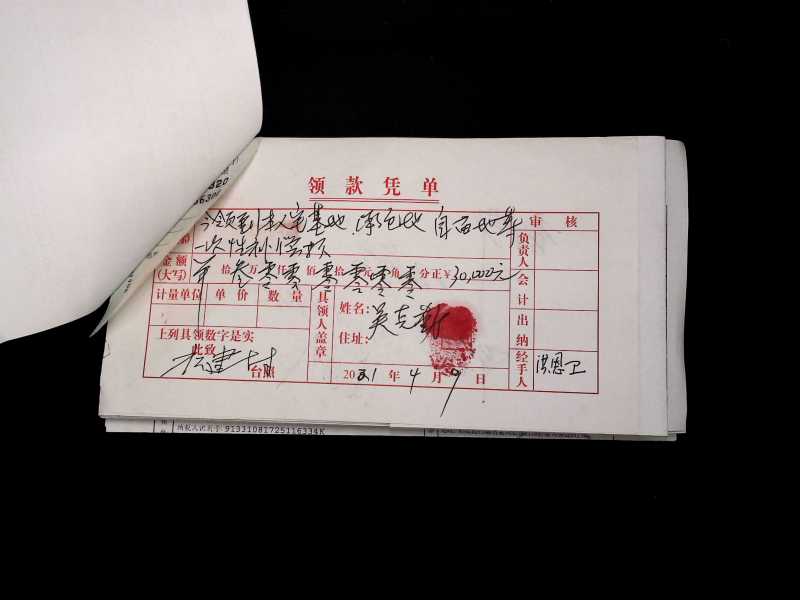 领款凭单
今领到本人宅基地、承包地、自留地等
一次性补偿款
审核
负责人
会计
出纳
经手人
洪恩卫
金额(大写)
叁拾零万零仟零佰零拾零元零角 分正¥30,000元
计量单位 单价 数量
上列具领数字是实
此致
台照
具领人盖章
姓名:吴克勤
住址:
2021年4月9日
纳税人识别号:91331081725116334K